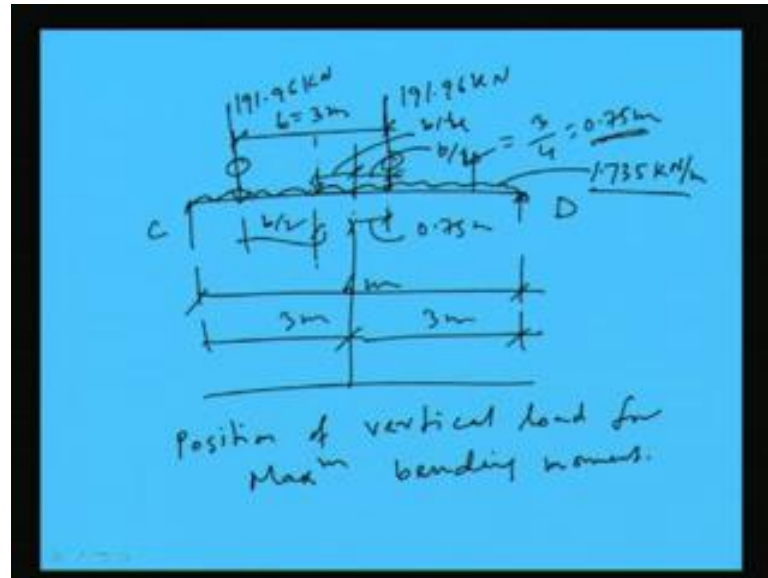 191.96KN 191.96KN
b = 3m
b/4
b/4 = 3/4 = 0.75m
1.735 KN/m
C b/2 0.75m D
6 m
3m 3m
Position of vertical load for
Max^m bending moment.